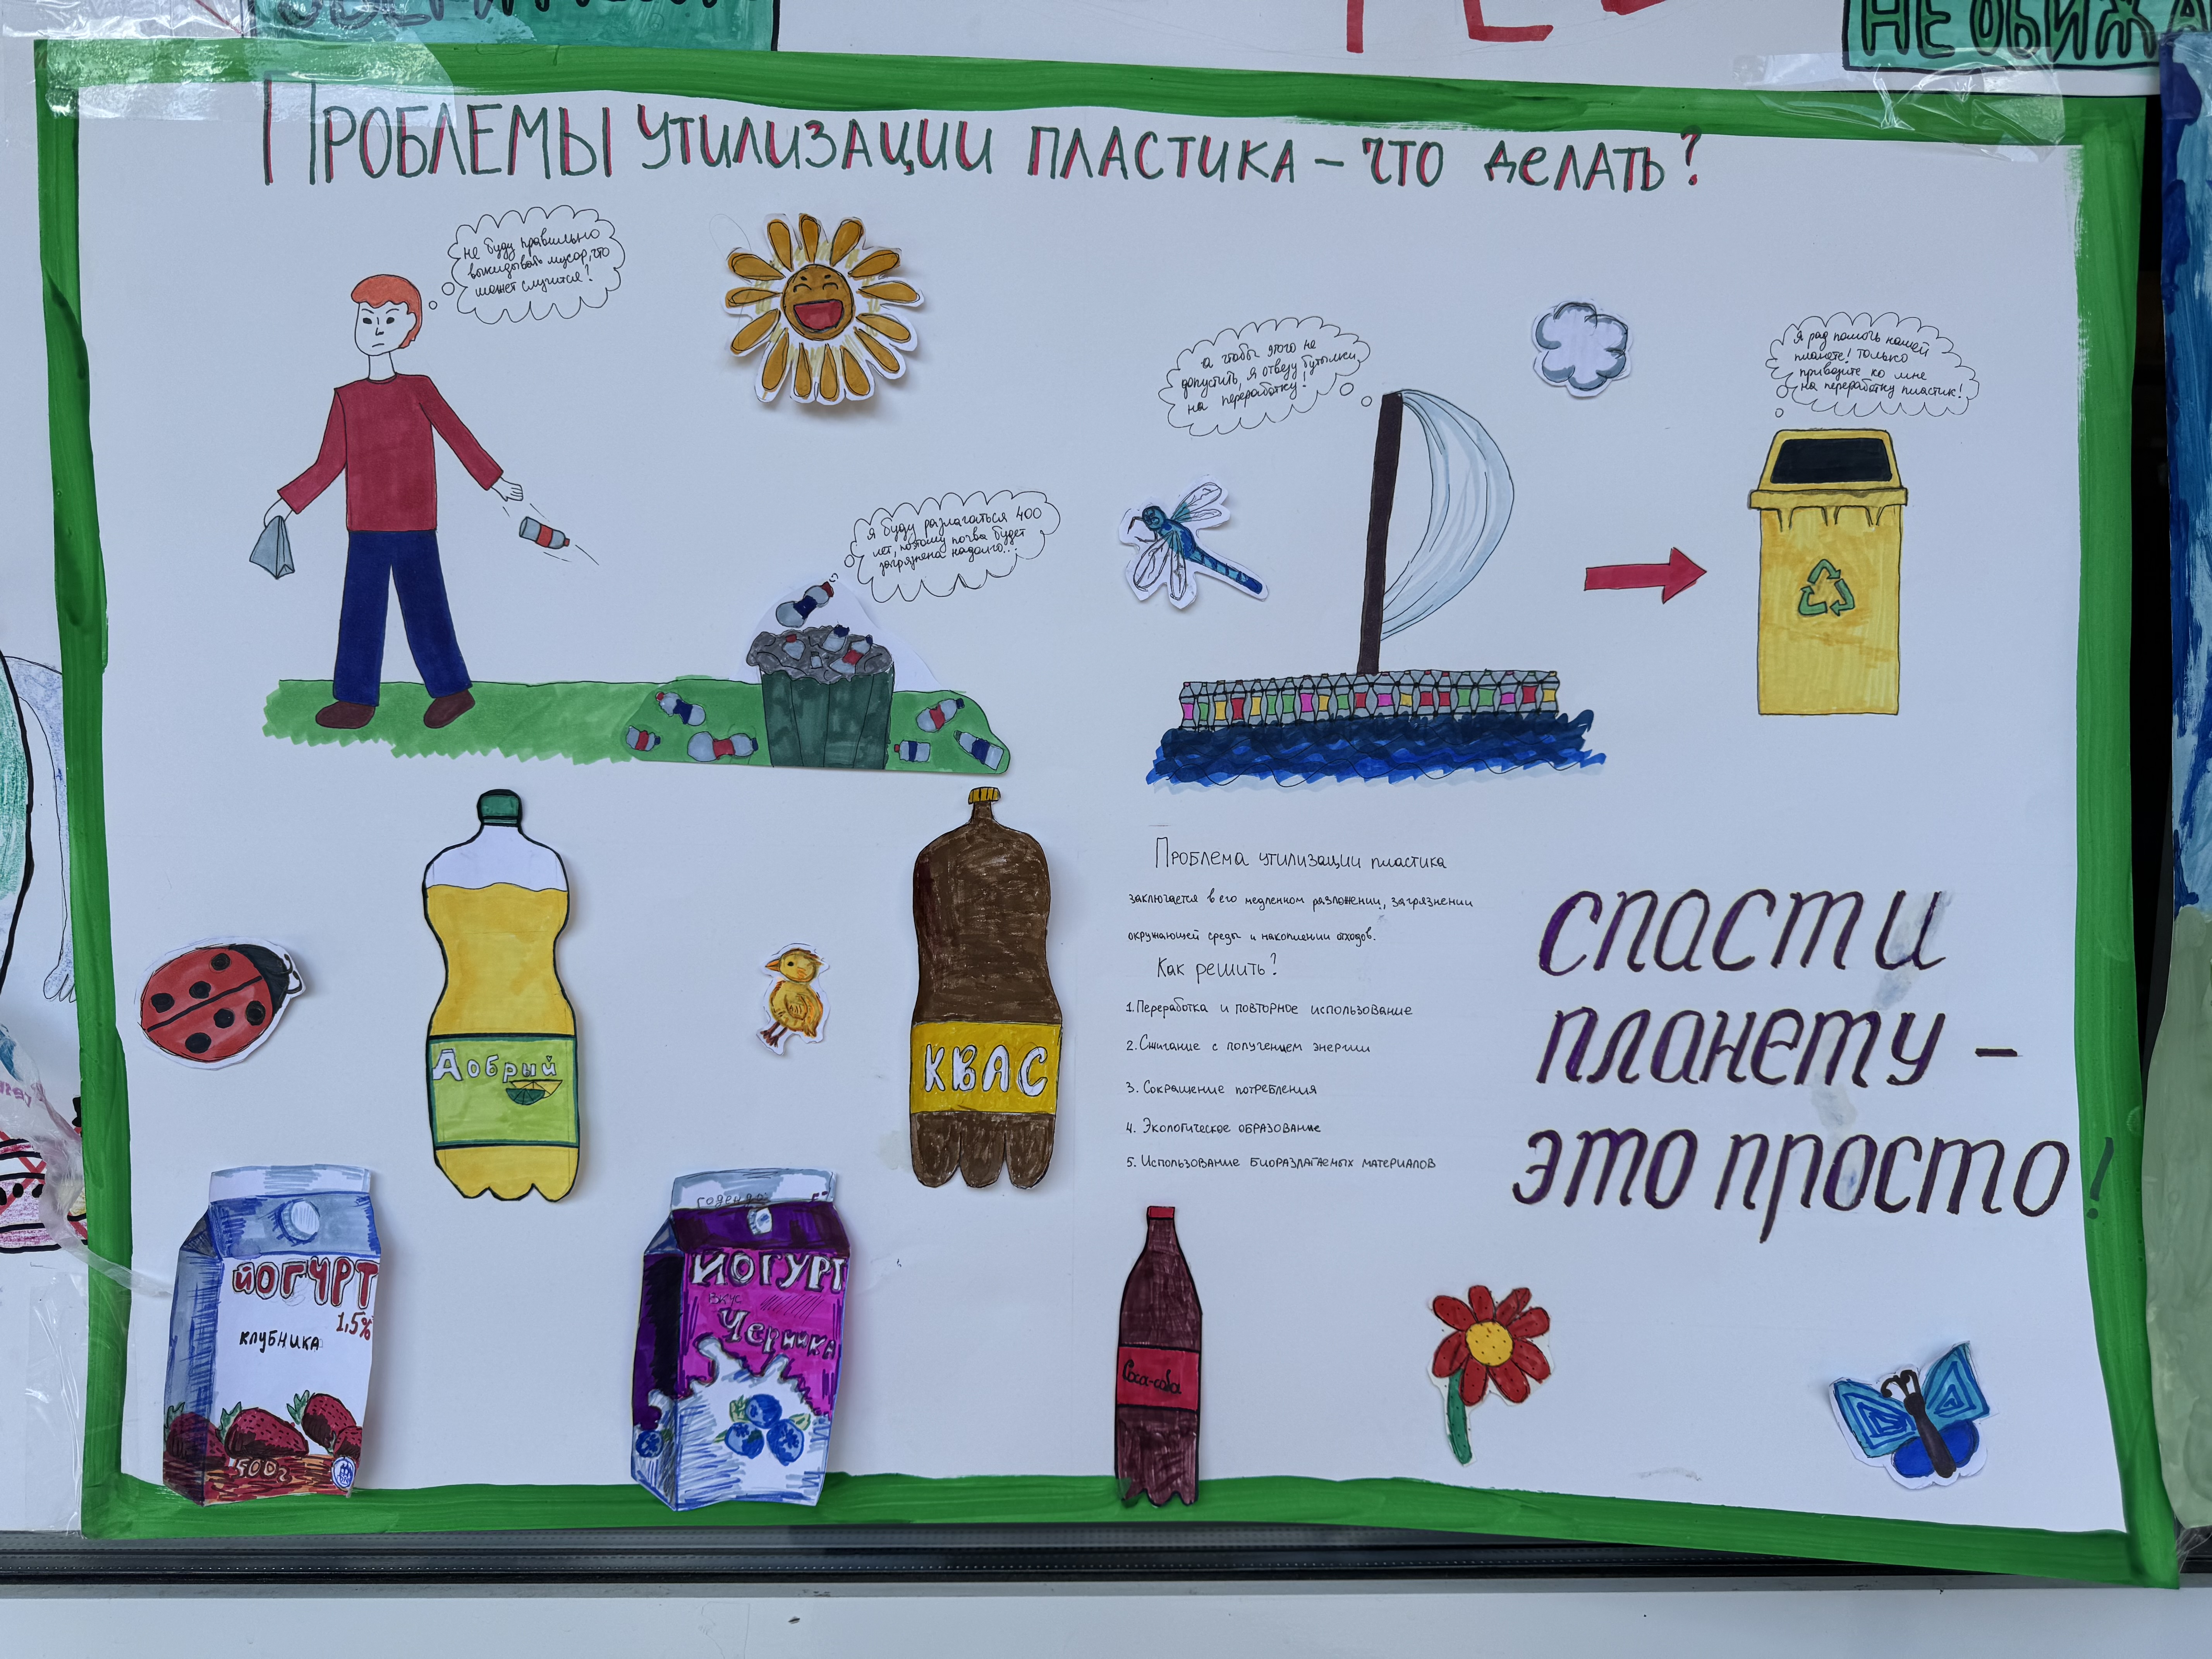 НЕ ОБИЖА
Проблемы утилизации пластика – что делать?
не буду правильно
выкидывать мусор, что
может случится?
а чтобы этого не
допустить, я отвезу бутылки
на переработку!
Я рад помочь нашей
планете! Только
приводите ко мне
на переработку пластик!
Я буду разлагаться 400
лет, поэтому почва будет
загрязнена надолго...
Проблема утилизации пластика
заключается в его медленном разложении, загрязнении
окружающей среды и накоплении отходов.
Как решить?
1. Переработка и повторное использование
2. Сжигание с получением энергии
3. Сокращение потребления
4. Экологическое образование
5. Использование биоразлагаемых материалов
спасти
планету –
это просто!
Добрый
КВАС
ЙОГУРТ
1,5%
клубника
500г
ЙОГУРТ
вкус
Черника
Coca-cola